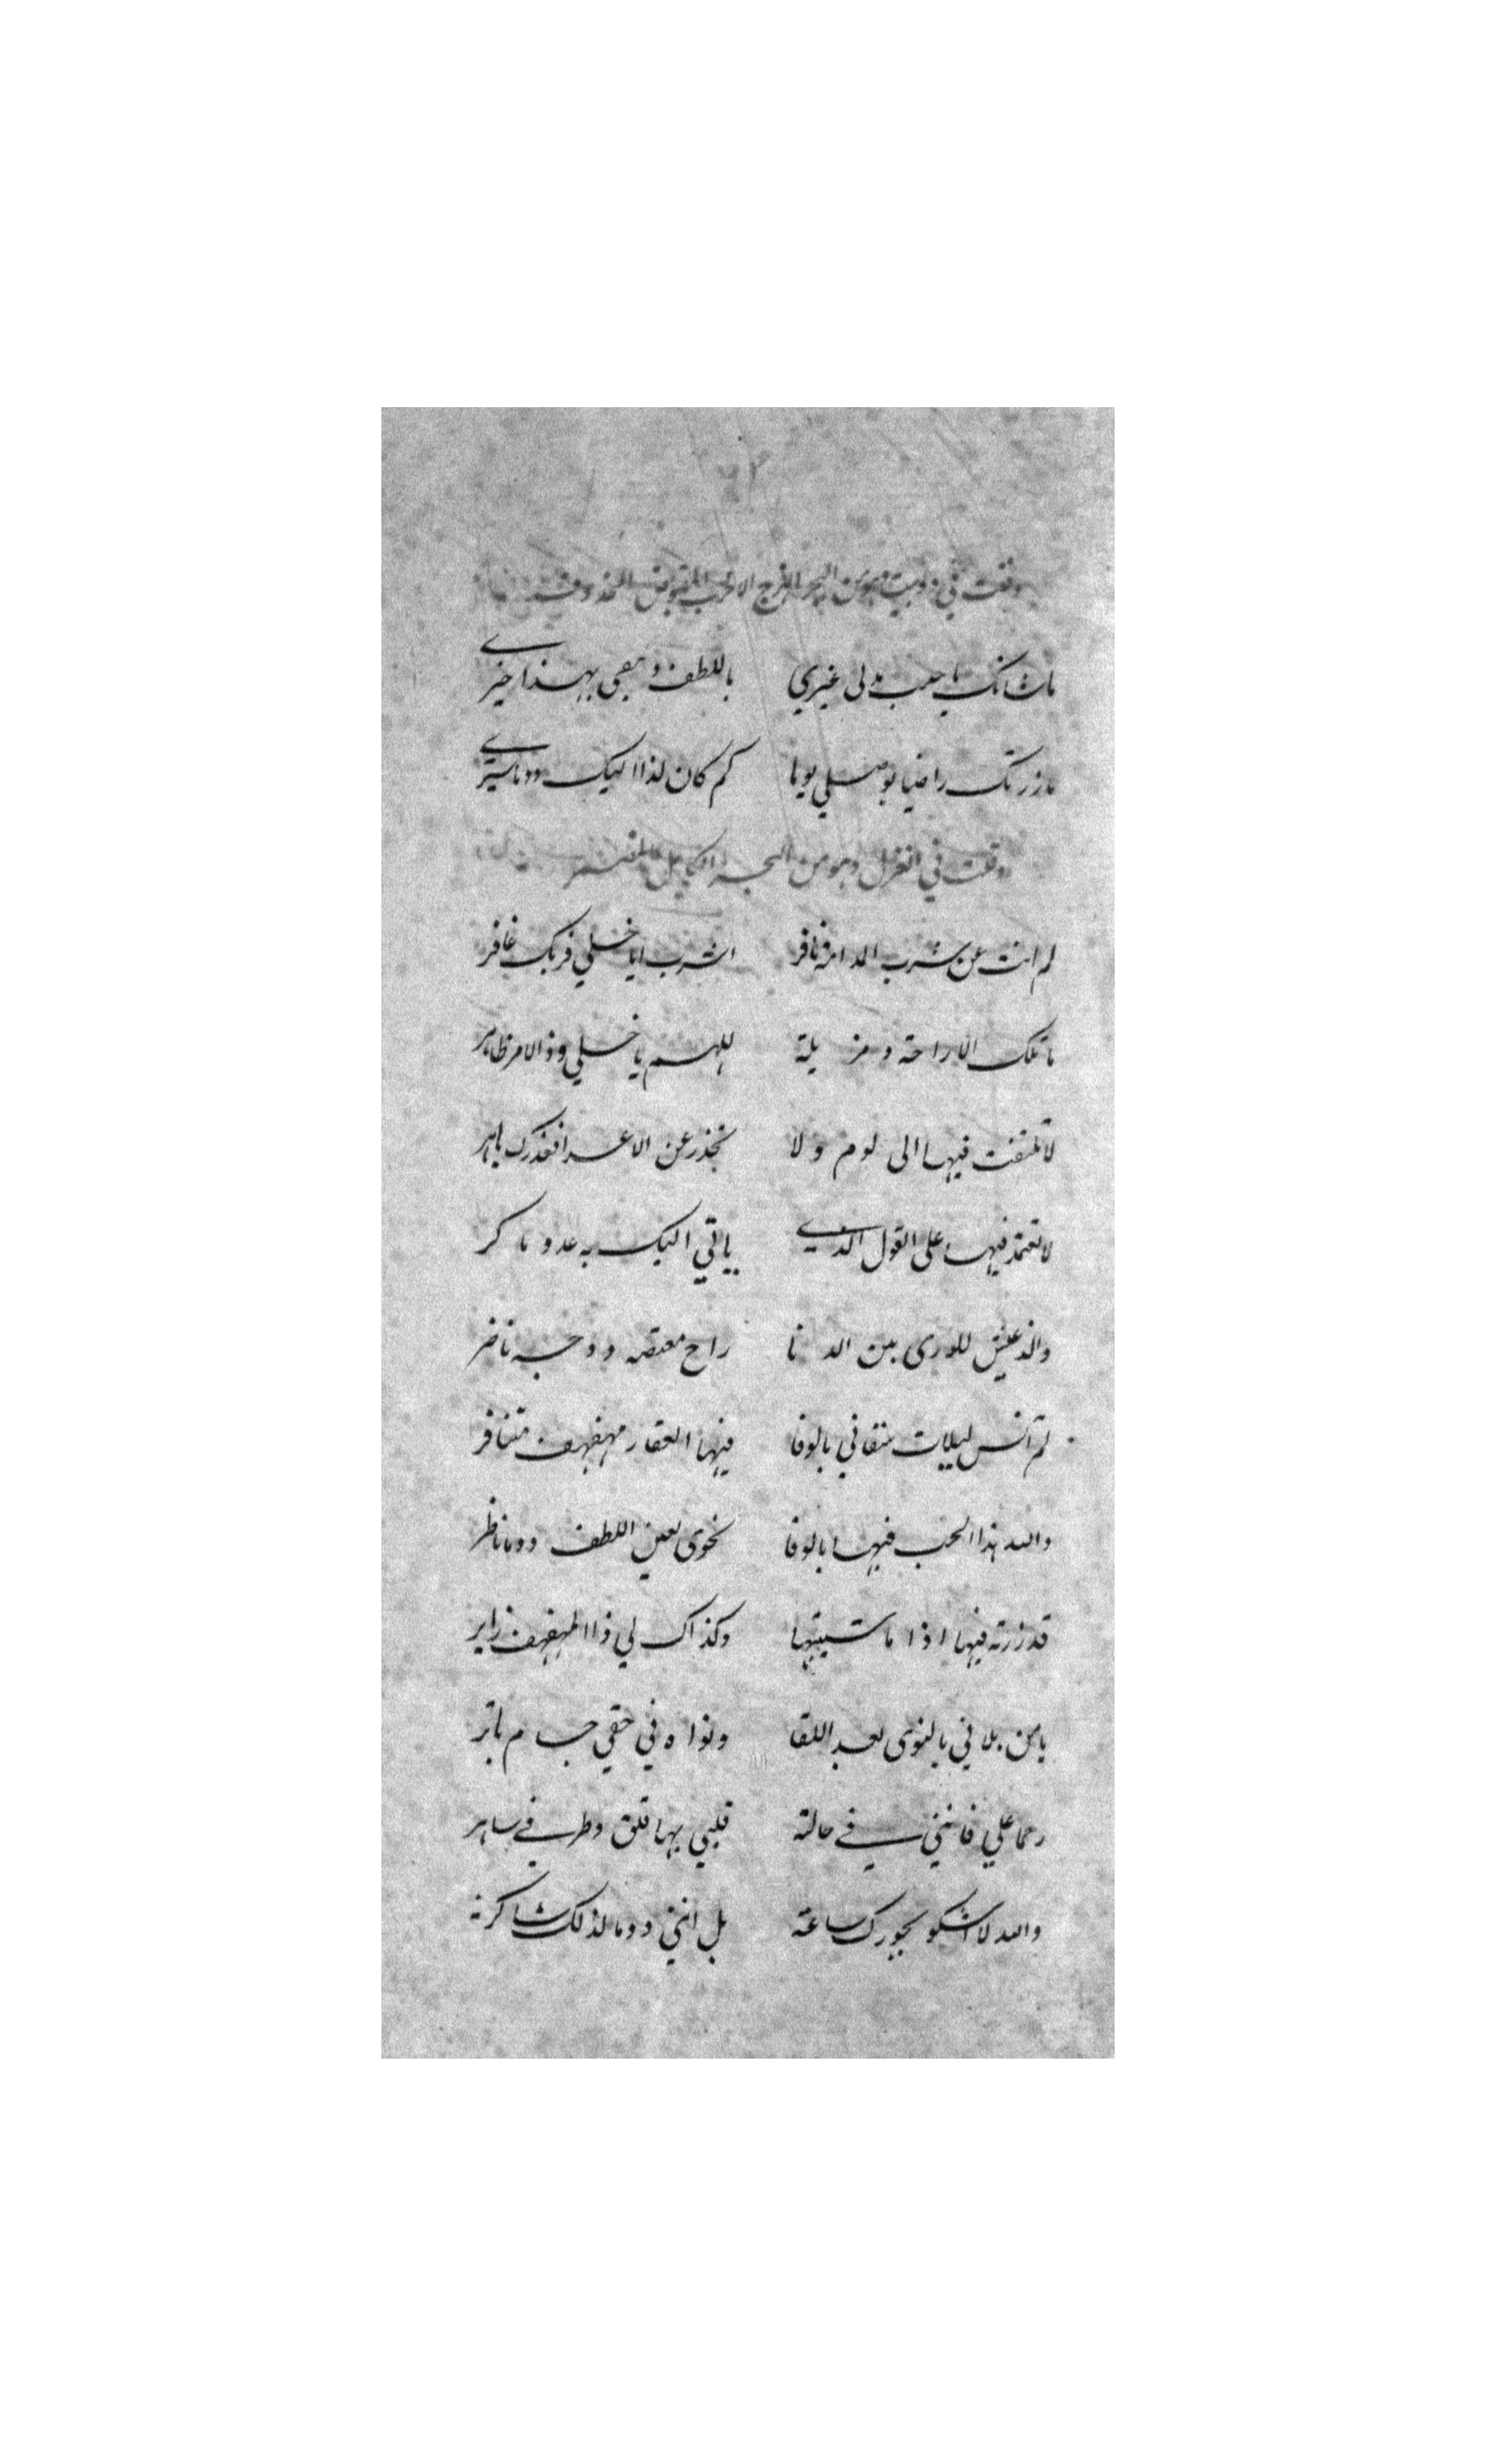 وقلت في دوبيت وهو من البحر الهزج الاخرب المقبوض
ماشانك يا حبيب بدلى غيري باللطف وتبقى بهذا خيري
مازرتك راضيا بوصلي يوما كم كان لذا اليك دوما سيري
وقلت في الغزل وهو من البحر الكامل
لم انت عن شرب المدامة نافر اشرب ايا خلي فربك غافر
ما تلك الا راحة ومزيلة للهم يا خلي وذا الامر ظاهر
لا تلتفت فيها الى لوم ولا تحذر عن الاعدا فعذرك باهر
لا تعتمد فيها على القول الذي ياتي اليك به عدو ماكر
والذ عيش للورى بين الدنا راح معتقه ووجه ناضر
لم آنس ليلات سقاني بالوفا فيها العقار مهفهف متنافر
والله هذا الحب فيها بالوفا نحوى بعين اللطف دوما ناظر
قد زرته فيها اذا ما شيتها وكذاك لي ذا المهفهف زاير
يامن بلاني بالنوى بعد اللقا ونواه في حقي حسام باتر
رحما علي فانني في حالة قلبي بها قلق وطرفي ساهر
والله لا اشكو لجورك ساعة بل انني دوما لذلك شاكر